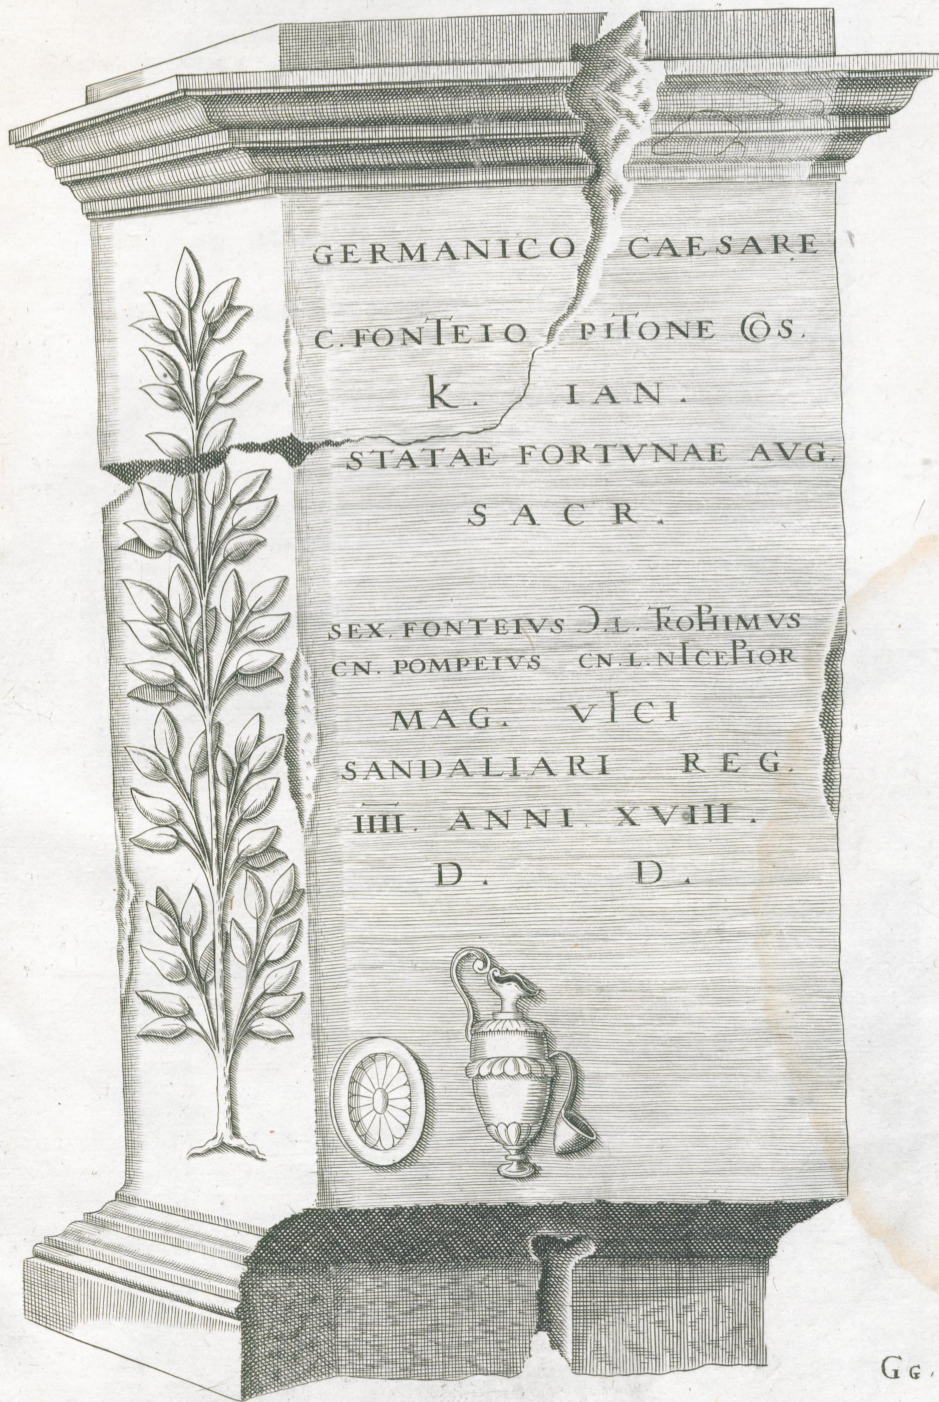 GERMANICO CAESARE
C. FONTEIO PITONE COS.
K. IAN.
STATAE FORTVNAE AVG.
SACR.
SEX. FONTEIVS Ɔ. L. TROPHIMVS
CN. POMPEIVS CN. L. NICEPHOR
MAG. VICI
SANDALIARI REG.
IIII. ANNI XVIII.
D. D.
Gg.